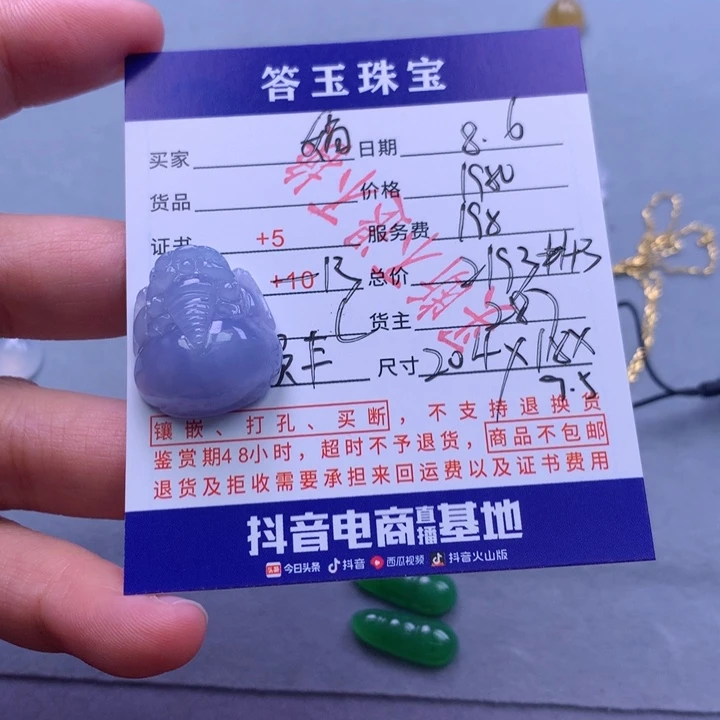 答玉珠宝
买家 日期 8.6
货品 价格 1980
证书 +5 服务费 198
+10 13 总价 2193
货主 287
尺寸 20.4×18×
7.5
镶嵌、打孔、买断，不支持退换货
鉴赏期48小时，超时不予退货，商品不包邮
退货及拒收需要承担来回运费以及证书费用
抖音电商直播基地
头条 今日头条 抖音 西瓜视频 抖音火山版